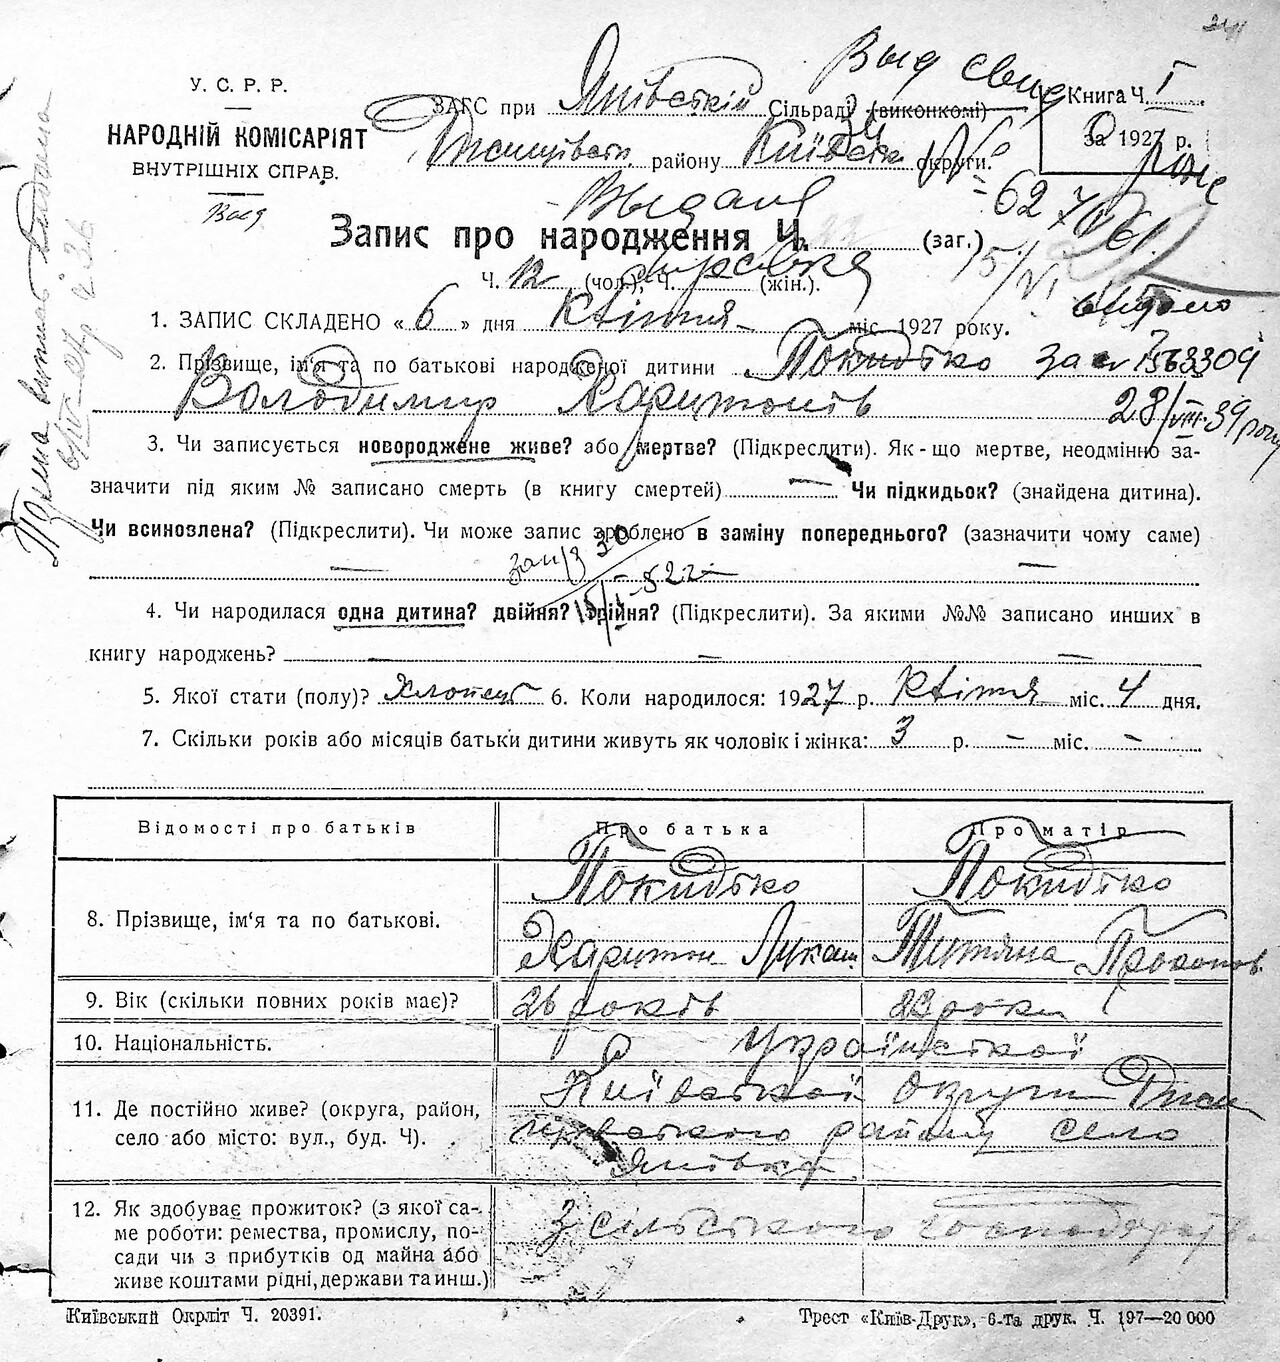 У. С. Р. Р.
НАРОДНІЙ КОМІСАРІЯТ
ВНУТРІШНІХ СПРАВ.
ЗАГС при Янівській Сільраді (виконкомі)
району Київськ округи.
Книга Ч. I
за 1927 р.
Выд свид
Выдано
Запис про народження Ч. 22 (заг.)
Ч. 12 (чол.), Ч. (жін.).
1. ЗАПИС СКЛАДЕНО « 6 » дня Квітня міс. 1927 року.
2. Прізвище, ім'я та по батькові народженої дитини Покидько
Володимир Харитонів
28/VIII-39 року
3. Чи записується новороджене живе? або мертве? (Підкреслити). Як-що мертве, неодмінно за-
значити під яким № записано смерть (в книгу смертей) — Чи підкидьок? (знайдена дитина).
Чи всиновлена? (Підкреслити). Чи може запис зроблено в заміну попереднього? (зазначити чому саме)
4. Чи народилася одна дитина? двійня? трійня? (Підкреслити). За якими №№ записано инших в
книгу народжень?
5. Якої стати (полу)? Хлопець 6. Коли народилося: 1927 р. Квітня міс. 4 дня.
7. Скільки років або місяців батьки дитини живуть як чоловік і жінка: 3 р. — міс. —
Відомості про батьків Про батька Про матір
8. Прізвище, ім'я та по батькові. Покидько Покидько
Харитон Лукаш. Титяна Прокопов.
9. Вік (скільки повних років має)? 26 років 23 роки
10. Національність. Української
11. Де постійно живе? (округа, район, село або місто: вул., буд. Ч). Київської округи
району село
Янівка
12. Як здобуває прожиток? (з якої са-
ме роботи: ремества, промислу, по-
сади чи з прибутків од майна або
живе коштами рідні, держави та инш.)
З сільського господарств.
Київський Окрліт Ч. 20391.
Трест «Київ-Друк», 6-та друк. Ч. 197—20 000